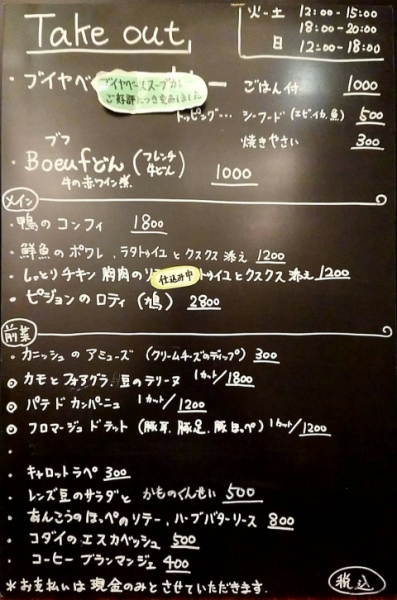 Take out
火-土 12:00-15:00
18:00-20:00
日 12:00-18:00
・ブイヤベ
ー ごはん付 1000
ブイヤベーススープカレー
ご好評につき完売しました
トッピング… シーフード(エビ、イカ、魚) 500
焼きやさい 300
ブフ
・Boeufどん (フレンチ牛どん) 1000
牛の赤ワイン煮
メイン
・鴨のコンフィ 1800
・鮮魚のポワレ、ラタトゥイユとクスクス添え 1200
・しっとりチキン胸肉の 仕込み中 トゥイユとクスクス添え 1200
・ピジョンのロティ (鳩) 2800
前菜
・カニッシュのアミューズ (クリームチーズのディップ) 300
◎ カモとフォアグラ、豆のテリーヌ 1カット/1800
◎ パテドカンパーニュ 1カット/1200
◎ フロマージュドテット (豚耳、豚足、豚ほっぺ) 1カット/1200
・
・キャロットラペ 300
・レンズ豆のサラダと かものくんせい 500
・あんこうのほっぺのソテー、ハーブバターソース 800
・コダイのエスカベッシュ 500
・コーヒーブランマンジェ 400
*お支払いは現金のみとさせていただきます.
税込